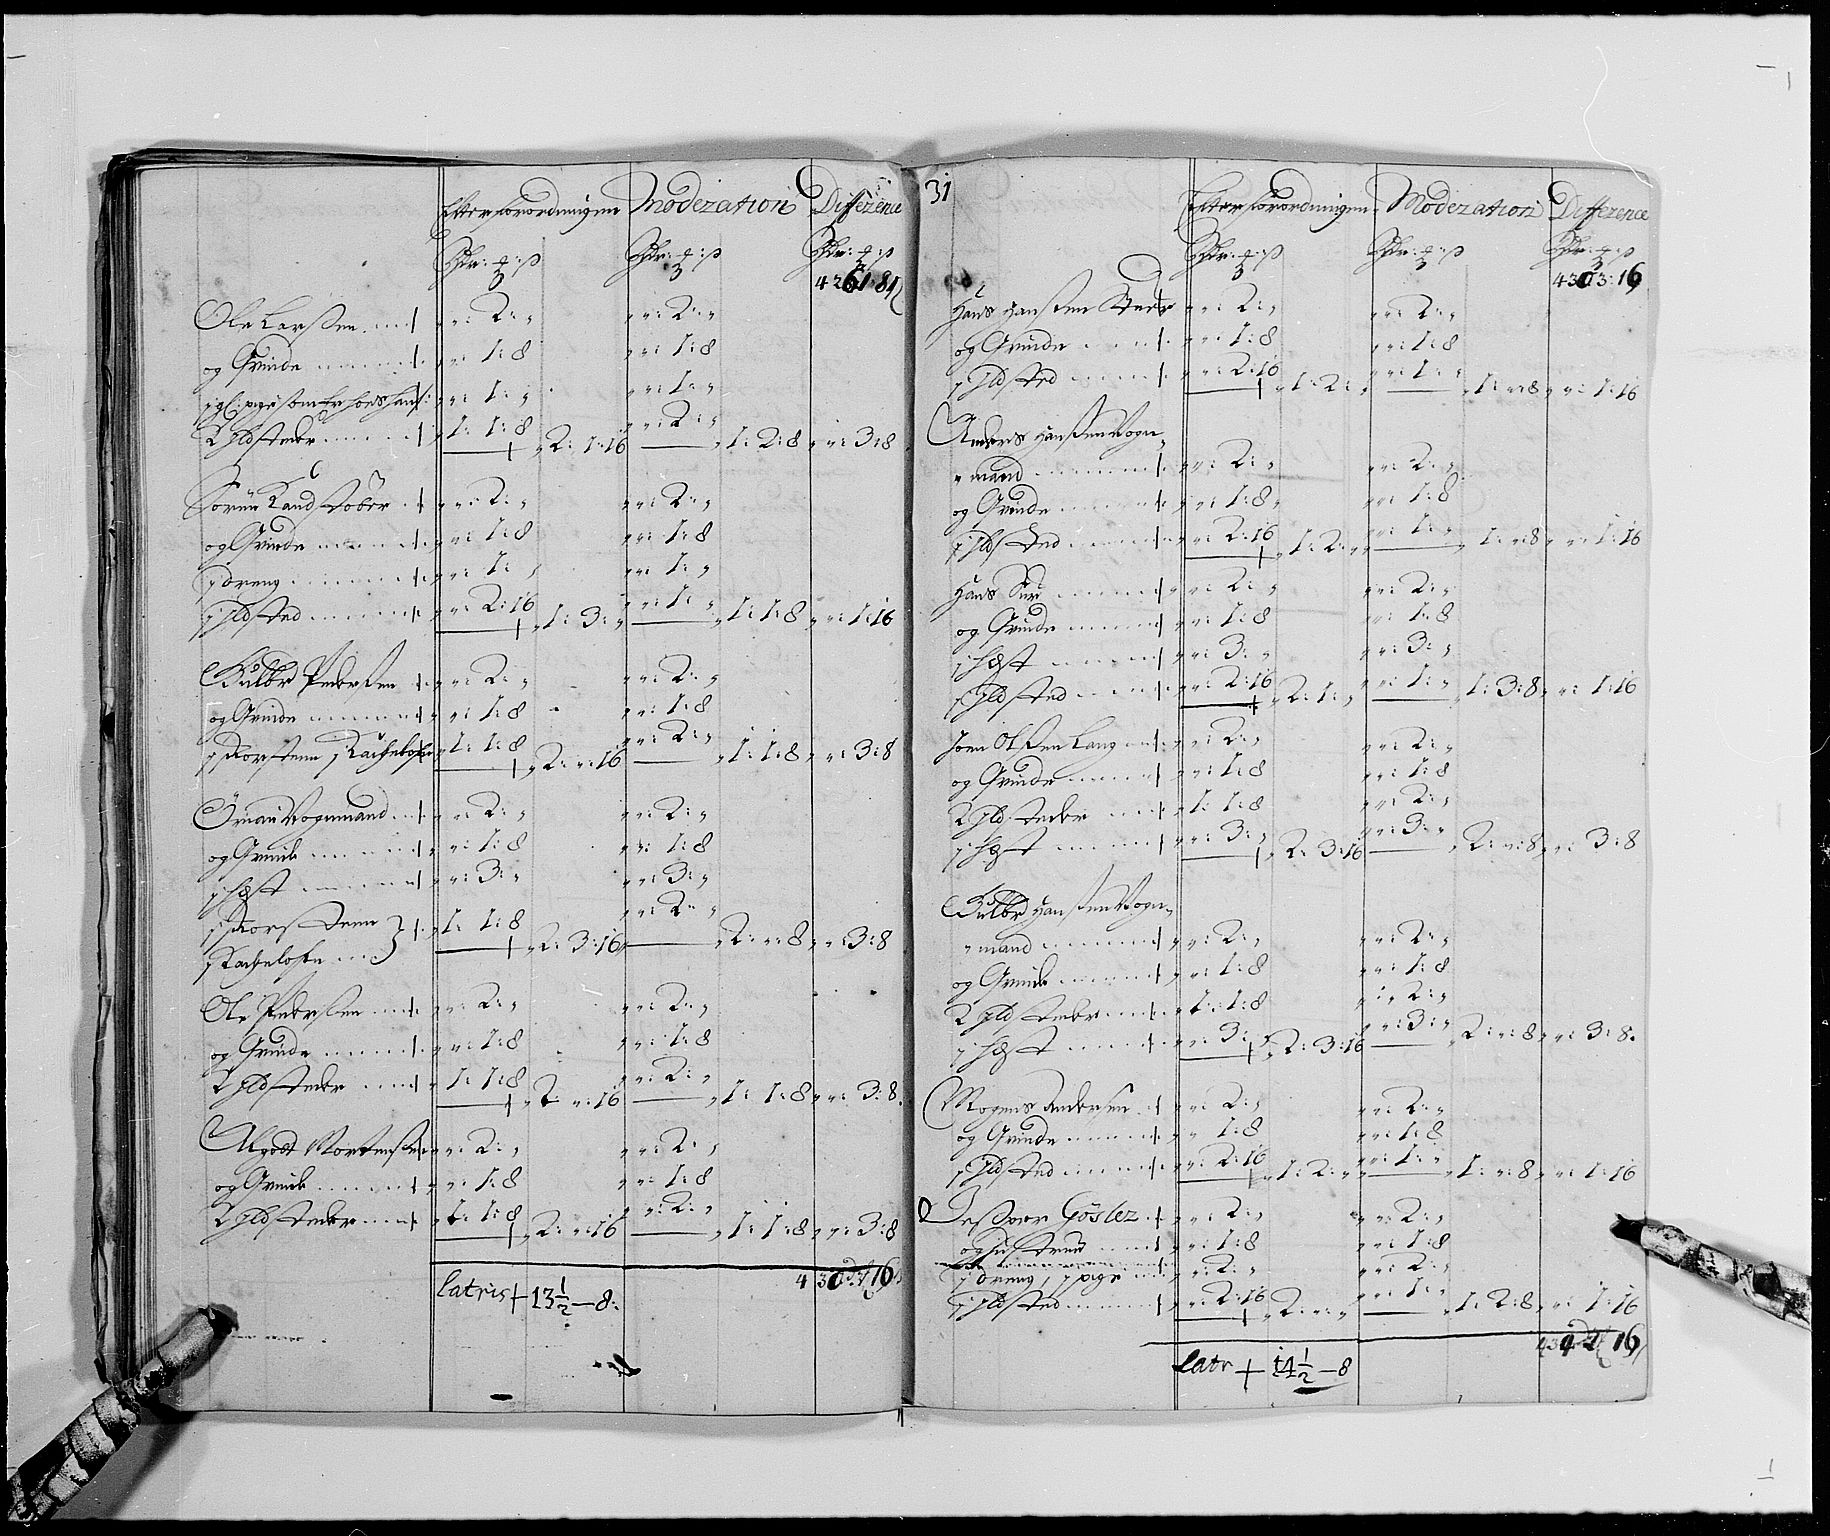 Efter forordningen Moderation Difference
Rdr: : ß Rdr: : ß Rdr: : ß
Ole Larßen 2: 2:
og Qvinde 1:8 1:8
1: 1:
2 Ildsteder 1: 1:8 2: 1:16 2: 1: 2:8 3:8
Sören 2: 2:
og Qvinde 1:8 1:8
1 dreng 1: 1:
1 Ildsted 2:16 1: 3: 1: 1: 1:8 1:16
Gulbr Pederßen 2: 2:
og Qvinde 1:8 1:8
1 Skorsteen 1 Kachelofn 1: 1:8 2: 16 2: 1: 1:8 3:8
Vognmand 2: 2:
og Qvinde 1:8 1:8
1 Hest 3: 3:
1 Skorsteen 1: 1:8 2:
1 Kachelofn 2: 3:16 2: 8 3:8
Ole Pederßen 2: 2:
og Qvinde 1:8 1:8
2 Ildsteder 1: 1:8 2: 16 2: 1: 1:8 3:8
Mortenßen 2: 2:
og Qvinde 1:8 1:8
2 Ildsteder 1: 1:8 2: 16 2: 1: 1:8 3:8
Latris + 13½ — 8:
31
Efter forordningen Moderation Difference
Rdr: : ß Rdr: : ß Rdr: : ß
4303:16
Hans Hanßen 2: 2:
og Qvinde 1:8 1:8
1 Ildsted 2:16 1: 2: 1: 1: 8 1:16
Anders Hanßen Vogn
mand 2: 2:
og Qvinde 1:8 1:8
1 Ildsted 2:16 1: 2: 1: 1: 8 1:16
Hans 2: 2:
og Qvinde 1:8 1:8
1 Hest 3: 3:
1 Ildsted 2:16 2: 1: 1: 1: 3:8 1:16
Jörn Olßen Lang 2: 2:
og Qvinde 1:8 1:8
2 Ildsteder 1: 1:8 2:
1 Hest 3: 2: 3:16 3: 2: 8 3:8
Gulbr Hanßen Vogn
mand 2: 2:
og Qvinde 1:8 1:8
2 Ildsteder 1: 1:8 2:
1 Hest 3: 2: 3:16 3: 2: 8 3:8
Mogens Anderßen 2: 2:
og Qvinde 1:8 1:8
1 Ildsted 2:16 1: 2: 1: 1: 8 1:16
Gösler 2: 2:
og hustrue 1:8 1:8
1 dreng, 1 pige 2: 2:
1 Ildsted 2:16 2: 1: 1: 2:8 1:16
Latr + 14½ — 8